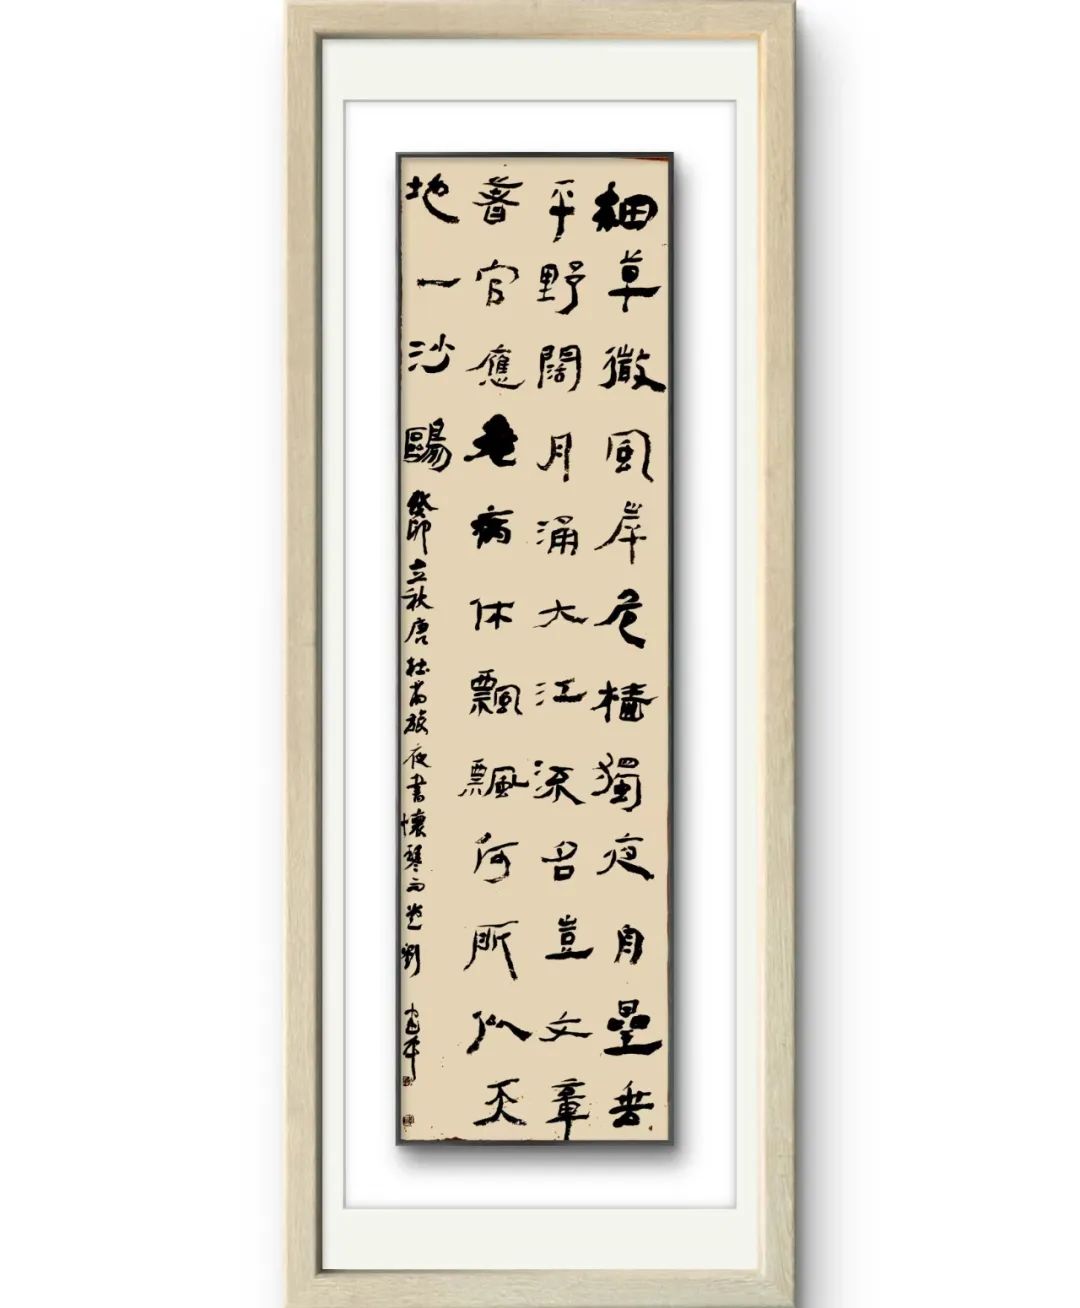 細草微風岸危檣獨夜舟星垂
平野闊月涌大江流名豈文章
著官應老病休飄飄何所似天
地一沙鷗
癸卯立秋唐杜甫旅夜書懷琴劉平